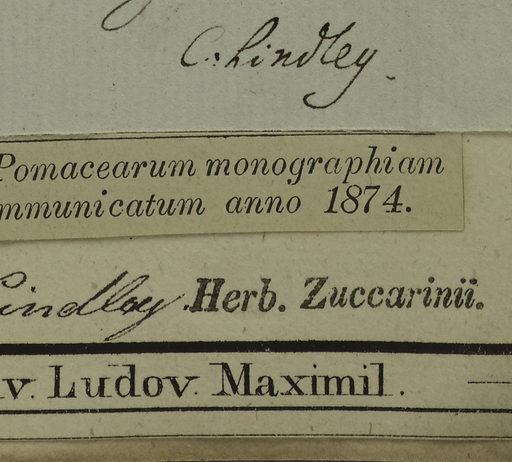 C. Lindley.
Pomacearum monographiam
mmunicatum anno 1874.
Lindley. Herb. Zuccarinii.
v. Ludov. Maximil.